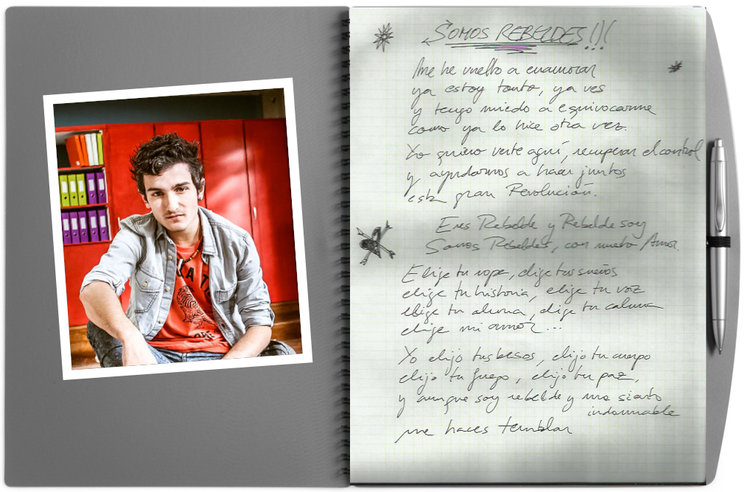 SOMOS REBELDES!!!
Me he vuelto a enamorar
ya estoy tonto, ya ves
y tengo miedo a equivocarme
como ya lo hice otra vez.
Yo quiero verte aquí, recuperar el control
y ayudarnos a hacer juntos
esta gran Revolución.
Eres Rebelde y Rebelde soy
Somos Rebeldes, con nuestro Amor.
Elige tu ropa, elige tus sueños
elige tu historia, elige tu voz
elige tu alma, elige tu calma
elige mi amor...
Yo elijo tus besos, elijo tu cuerpo
elijo tu fuego, elijo tu paz,
y aunque soy rebelde y me siento
indomable
me haces temblar